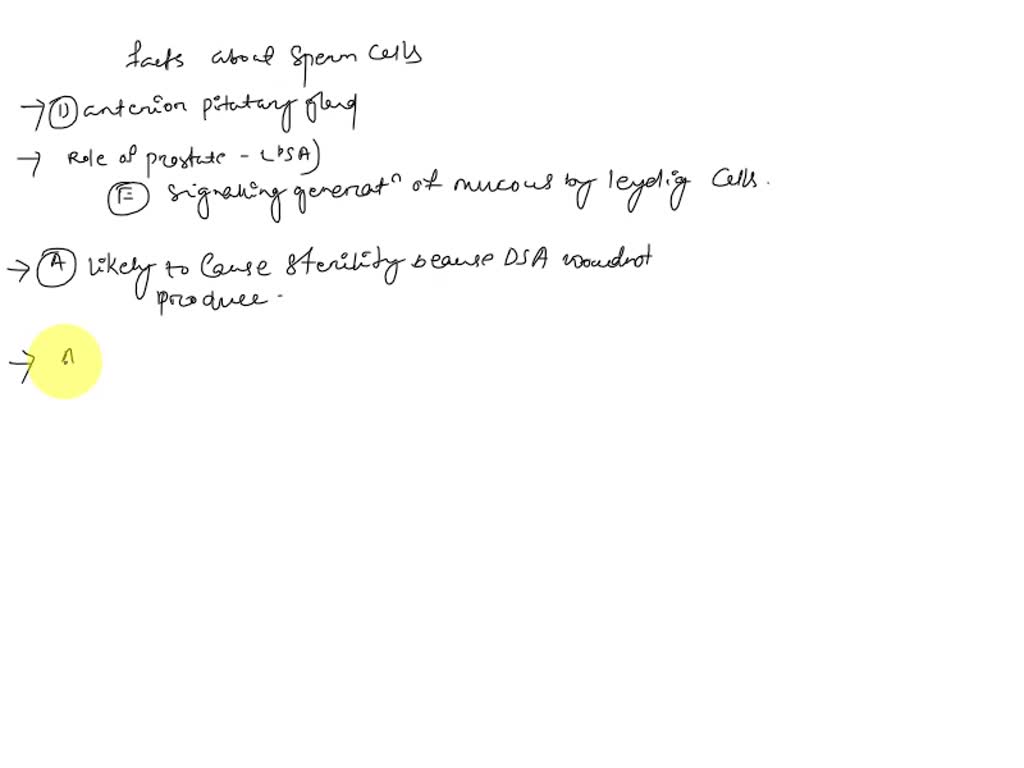 facts about Sperm Cells
→ D anterior pitutary gland
→ Role of prostate - (PSA)
E signaling generatⁿ of mucous by leydig Cells.
→ A Likely to Cause sterility because DSA
produce.
→ A